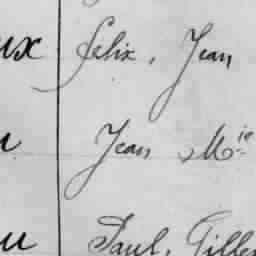 ux félix, Jean
Jean M.ie
u Paul, Gilles